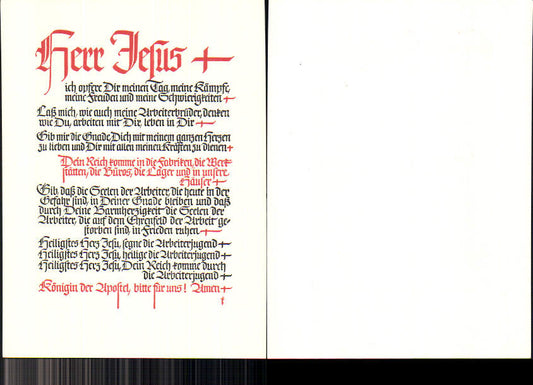 Herr Jesus +
ich opfere Dir meinen Tag, meine Kämpfe,
meine Freuden und meine Schwierigkeiten +
Laß mich, wie auch meine Arbeiterbrüder, denken
wie Du, arbeiten mit Dir, leben in Dir +
Gib mir die Gnade, Dich mit meinem ganzen Herzen
zu lieben und Dir mit allen meinen Kräften zu dienen +
Dein Reich komme in die Fabriken, die Werk-
stätten, die Büros, die Läger und in unsere
Häuser +
Gib, daß die Seelen der Arbeiter, die heute in der
Gefahr sind, in Deiner Gnade bleiben und daß
durch Deine Barmherzigkeit die Seelen der
Arbeiter, die auf dem Ehrenfeld der Arbeit ge-
storben sind, in Frieden ruhen +
Heiligstes Herz Jesu, segne die Arbeiterjugend +
Heiligstes Herz Jesu, heilige die Arbeiterjugend +
Heiligstes Herz Jesu, Dein Reich komme durch
die Arbeiterjugend +
Königin der Apostel, bitte für uns! Amen +